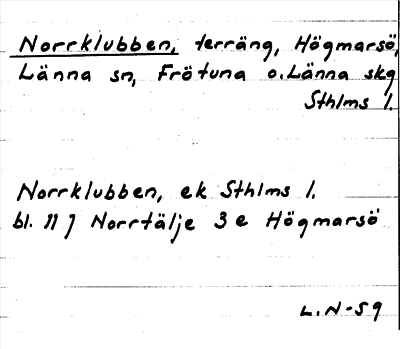 Norrklubben, terräng, Högmarsö,
Länna sn, Frötuna o. Länna skg
Sthlms l.
Norrklubben, ek Sthlms l.
bl. 11 7 Norrtälje 3 e Högmarsö
L.N-59